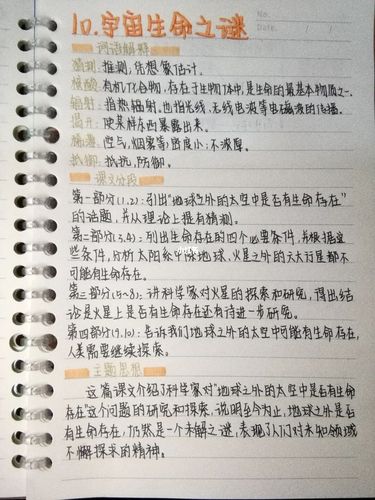 No.
Date.
10.宇宙生命之谜
词语解释
猜测:推测,凭想象估计。
核酸:有机化合物,存在于生物体中,是生命的最基本物质之一。
辐射:指热辐射,也指光线、无线电波等电磁波的传播。
揭开:使某样东西暴露出来。
稀薄:空气,烟雾等;密度小;不浓厚。
抵御:抵抗,防御。
课文分段
第一部分(1,2):引出"地球之外的太空中是否有生命存在"
的话题,并从理论上提有猜测。
第二部分(3,4):列出生命存在的四个必要条件,并根据这
些条件,分析太阳系中除地球、火星之外的六大行星都不
可能有生命存在。
第三部分(5~8):讲科学家对火星的探索和研究,得出结
论是火星上是否有生命存在还有待进一步研究。
第四部分(9,10):告诉我们地球之外的太空中可能有生命存在,
人类需要继续探索。
主题思想
这篇课文介绍了科学家对"地球之外的太空中是否有生命
存在"这个问题的研究和探索,说明至今为止,地球之外是否
有生命存在,仍然是一个未解之谜,表现了人们对未知领域
不懈探求的精神。